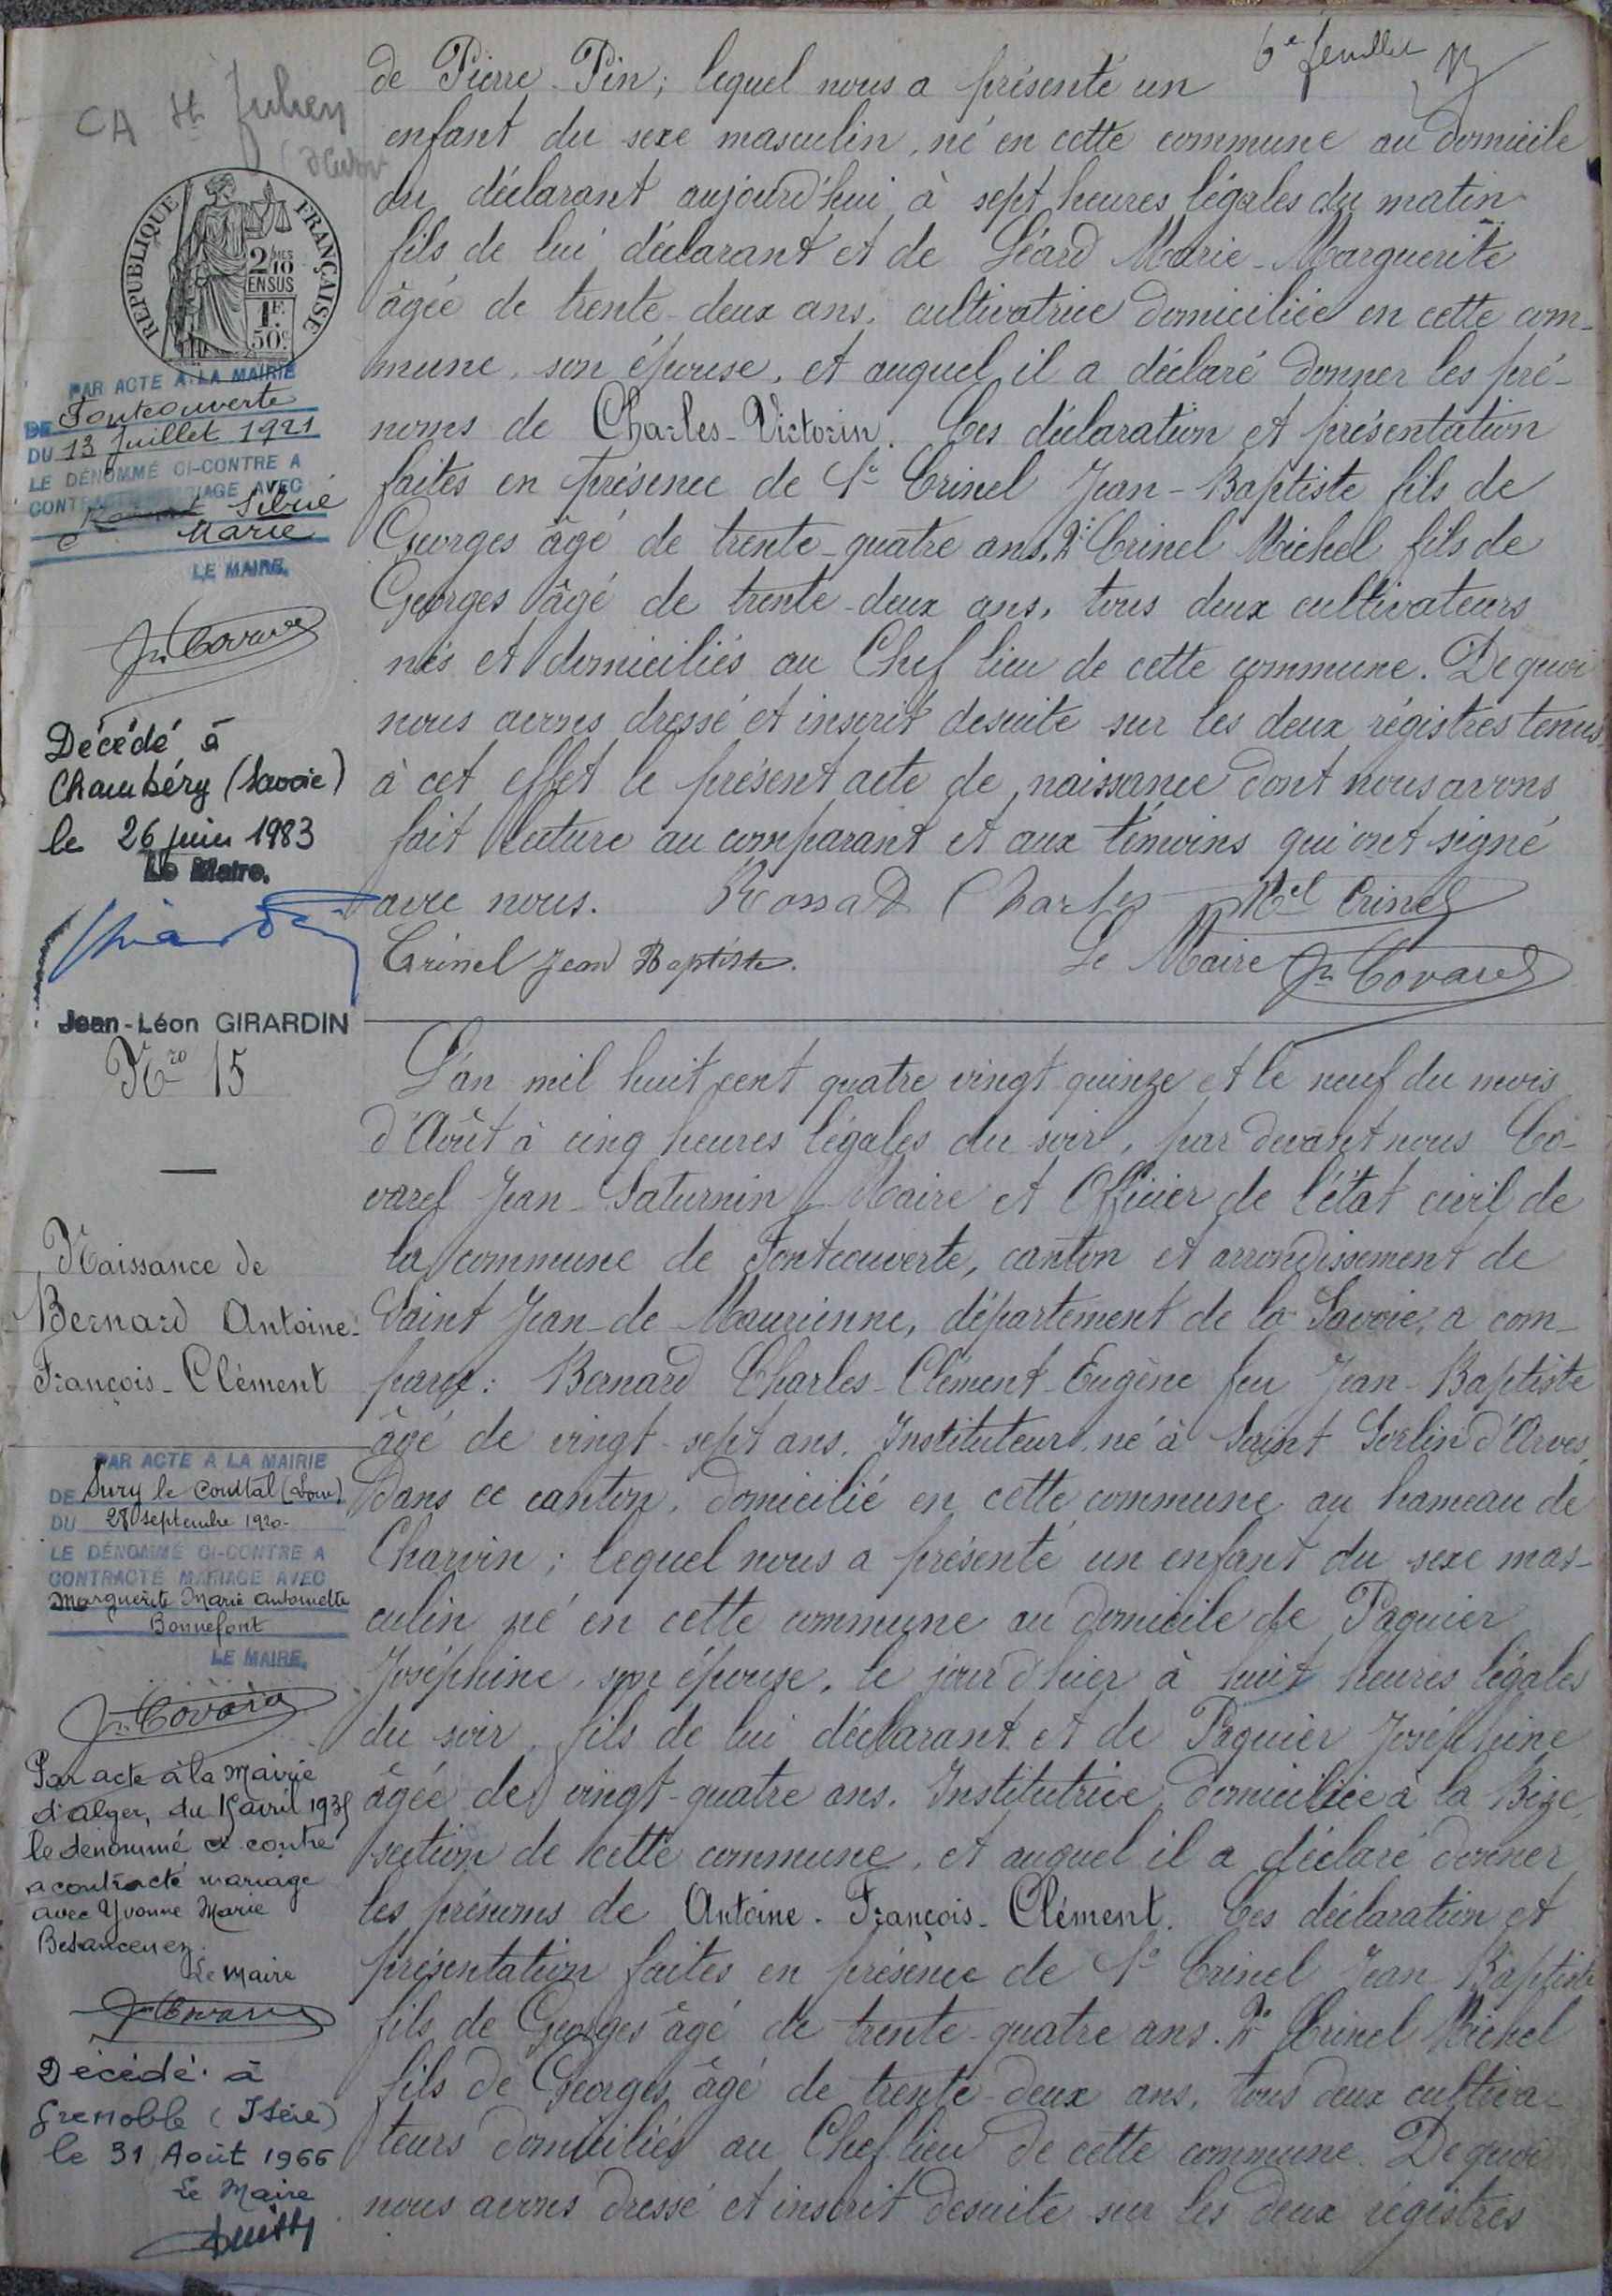 6e feuillet
de Pierre Pin; lequel nous a présenté un
enfant du sexe masculin, né en cette commune au domicile
du déclarant aujourd'hui à sept heures légales du matin
fils de lui déclarant et de Léard Marie-Marguerite
âgée de trente-deux ans, cultivatrice domiciliée en cette com-
mune, son épouse, et auquel il a déclaré donner les pré-
noms de Charles-Victorin. Ces déclaration et présentation
faites en présence de 1° Crinel Jean-Baptiste fils de
Georges âgé de trente-quatre ans, 2° Crinel Michel fils de
Georges âgé de trente-deux ans, tous deux cultivateurs
nés et domiciliés au Chef lieu de cette commune. De quoi
nous avons dressé et inscrit desuite sur les deux régistres tenus
à cet effet le présent acte de naissance dont nous avons
fait lecture au comparant et aux témoins qui ont signé
avec nous. Rossat Charles Mel Crinel
Crinel Jean Baptiste. Le Maire Jn Covarel
CA St Julien
RÉPUBLIQUE FRANÇAISE
2/10MES
EN SUS
1F.
50c
PAR ACTE A LA MAIRIE
DE Fontcouverte
DU 13 Juillet 1921
LE DÉNOMMÉ CI-CONTRE A
CONTRACTÉ MARIAGE AVEC
Sibué
Marie
LE MAIRE,
Jn Covarel
Décédé à
Chambéry (Savoie)
le 26 juin 1983
Le Maire.
Jean-Léon GIRARDIN
Nro 15
Naissance de
Bernard Antoine-
François-Clément
L'an mil huit cent quatre vingt quinze et le neuf du mois
d'Août à cinq heures légales du soir, par devant nous Co-
varel Jean-Saturnin Maire et Officier de l'état civil de
la commune de Fontcouverte, canton et arrondissement de
Saint Jean-de-Maurienne, département de la Savoie, a com-
paru: Bernard Charles-Clément-Eugène feu Jean-Baptiste
âgé de vingt-sept ans, Instituteur, né à Saint Sorlin d'Arves,
dans ce canton, domicilié en cette commune au hameau de
Charvin; lequel nous a présenté un enfant du sexe mas-
culin né en cette commune au domicile de Paquier
Joséphine, son épouse, le jour d'hier à huit heures légales
du soir, fils de lui déclarant et de Paquier Joséphine
âgée de vingt-quatre ans, Institutrice, domiciliée à la Bise,
section de cette commune, et auquel il a déclaré donner
les prénoms de Antoine-François-Clément. Ces déclaration et
présentation faites en présence de 1° Crinel Jean Baptiste
fils de Georges âgé de trente-quatre ans. 2° Crinel Michel
fils de Georges âgé de trente-deux ans, tous deux cultiva-
teurs domiciliés au Chef lieu de cette commune. De quoi
nous avons dressé et inscrit desuite sur les deux régistres
PAR ACTE A LA MAIRIE
DE Sury le Comtal (Loire)
DU 28 septembre 1920
LE DÉNOMMÉ CI-CONTRE A
CONTRACTÉ MARIAGE AVEC
Marguerite Marie Antoinette
Bonnefont
LE MAIRE,
Jn Covarel
Par acte à la Mairie
d'Alger, du 15 avril 1935
le dénommé ci-contre
a contracté mariage
avec Yvonne Marie
Besancenez.
Le Maire
Jn Covarel
Décédé à
Grenoble (Isère)
le 31 Août 1966
Le Maire